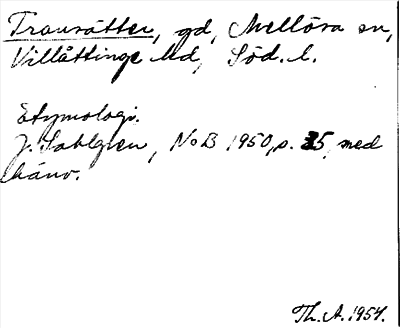 Transätter, gd, Mellösa sn,
Villåttinge hd, Söd. l.
Etymologi.
J. Sahlgren, NoB 1950, p. 35, med
hänv.
Th. A. 1954.